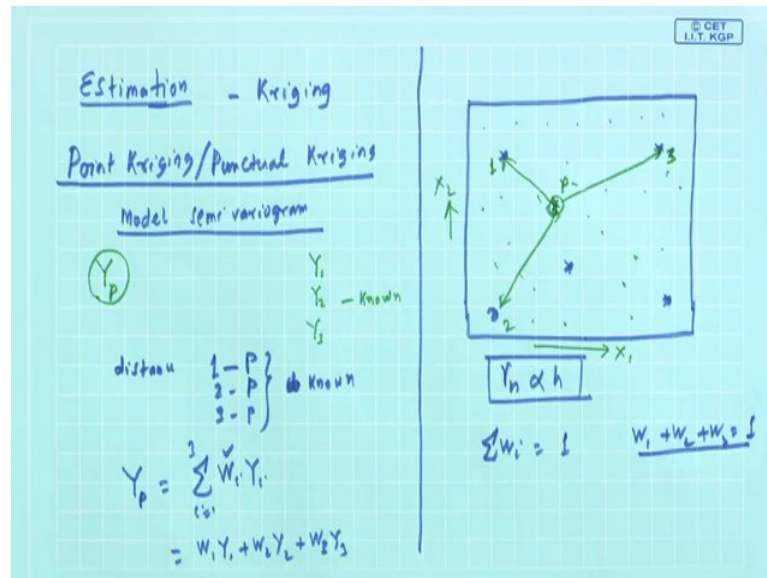 © CET
I.I.T. KGP
Estimation - Kriging
Point Kriging/Punctual Kriging
Model semivariogram
Yp
Y1
Y2 - Known
Y3
distance
1 - P
2 - P
3 - P
Known
Yp = ∑ i=1 3 Wi Yi
= W1Y1 + W2Y2 + W3Y3
1
3
P
X2
2
X1
γh ∝ h
∑Wi = 1
W1 + W2 + W3 = 1